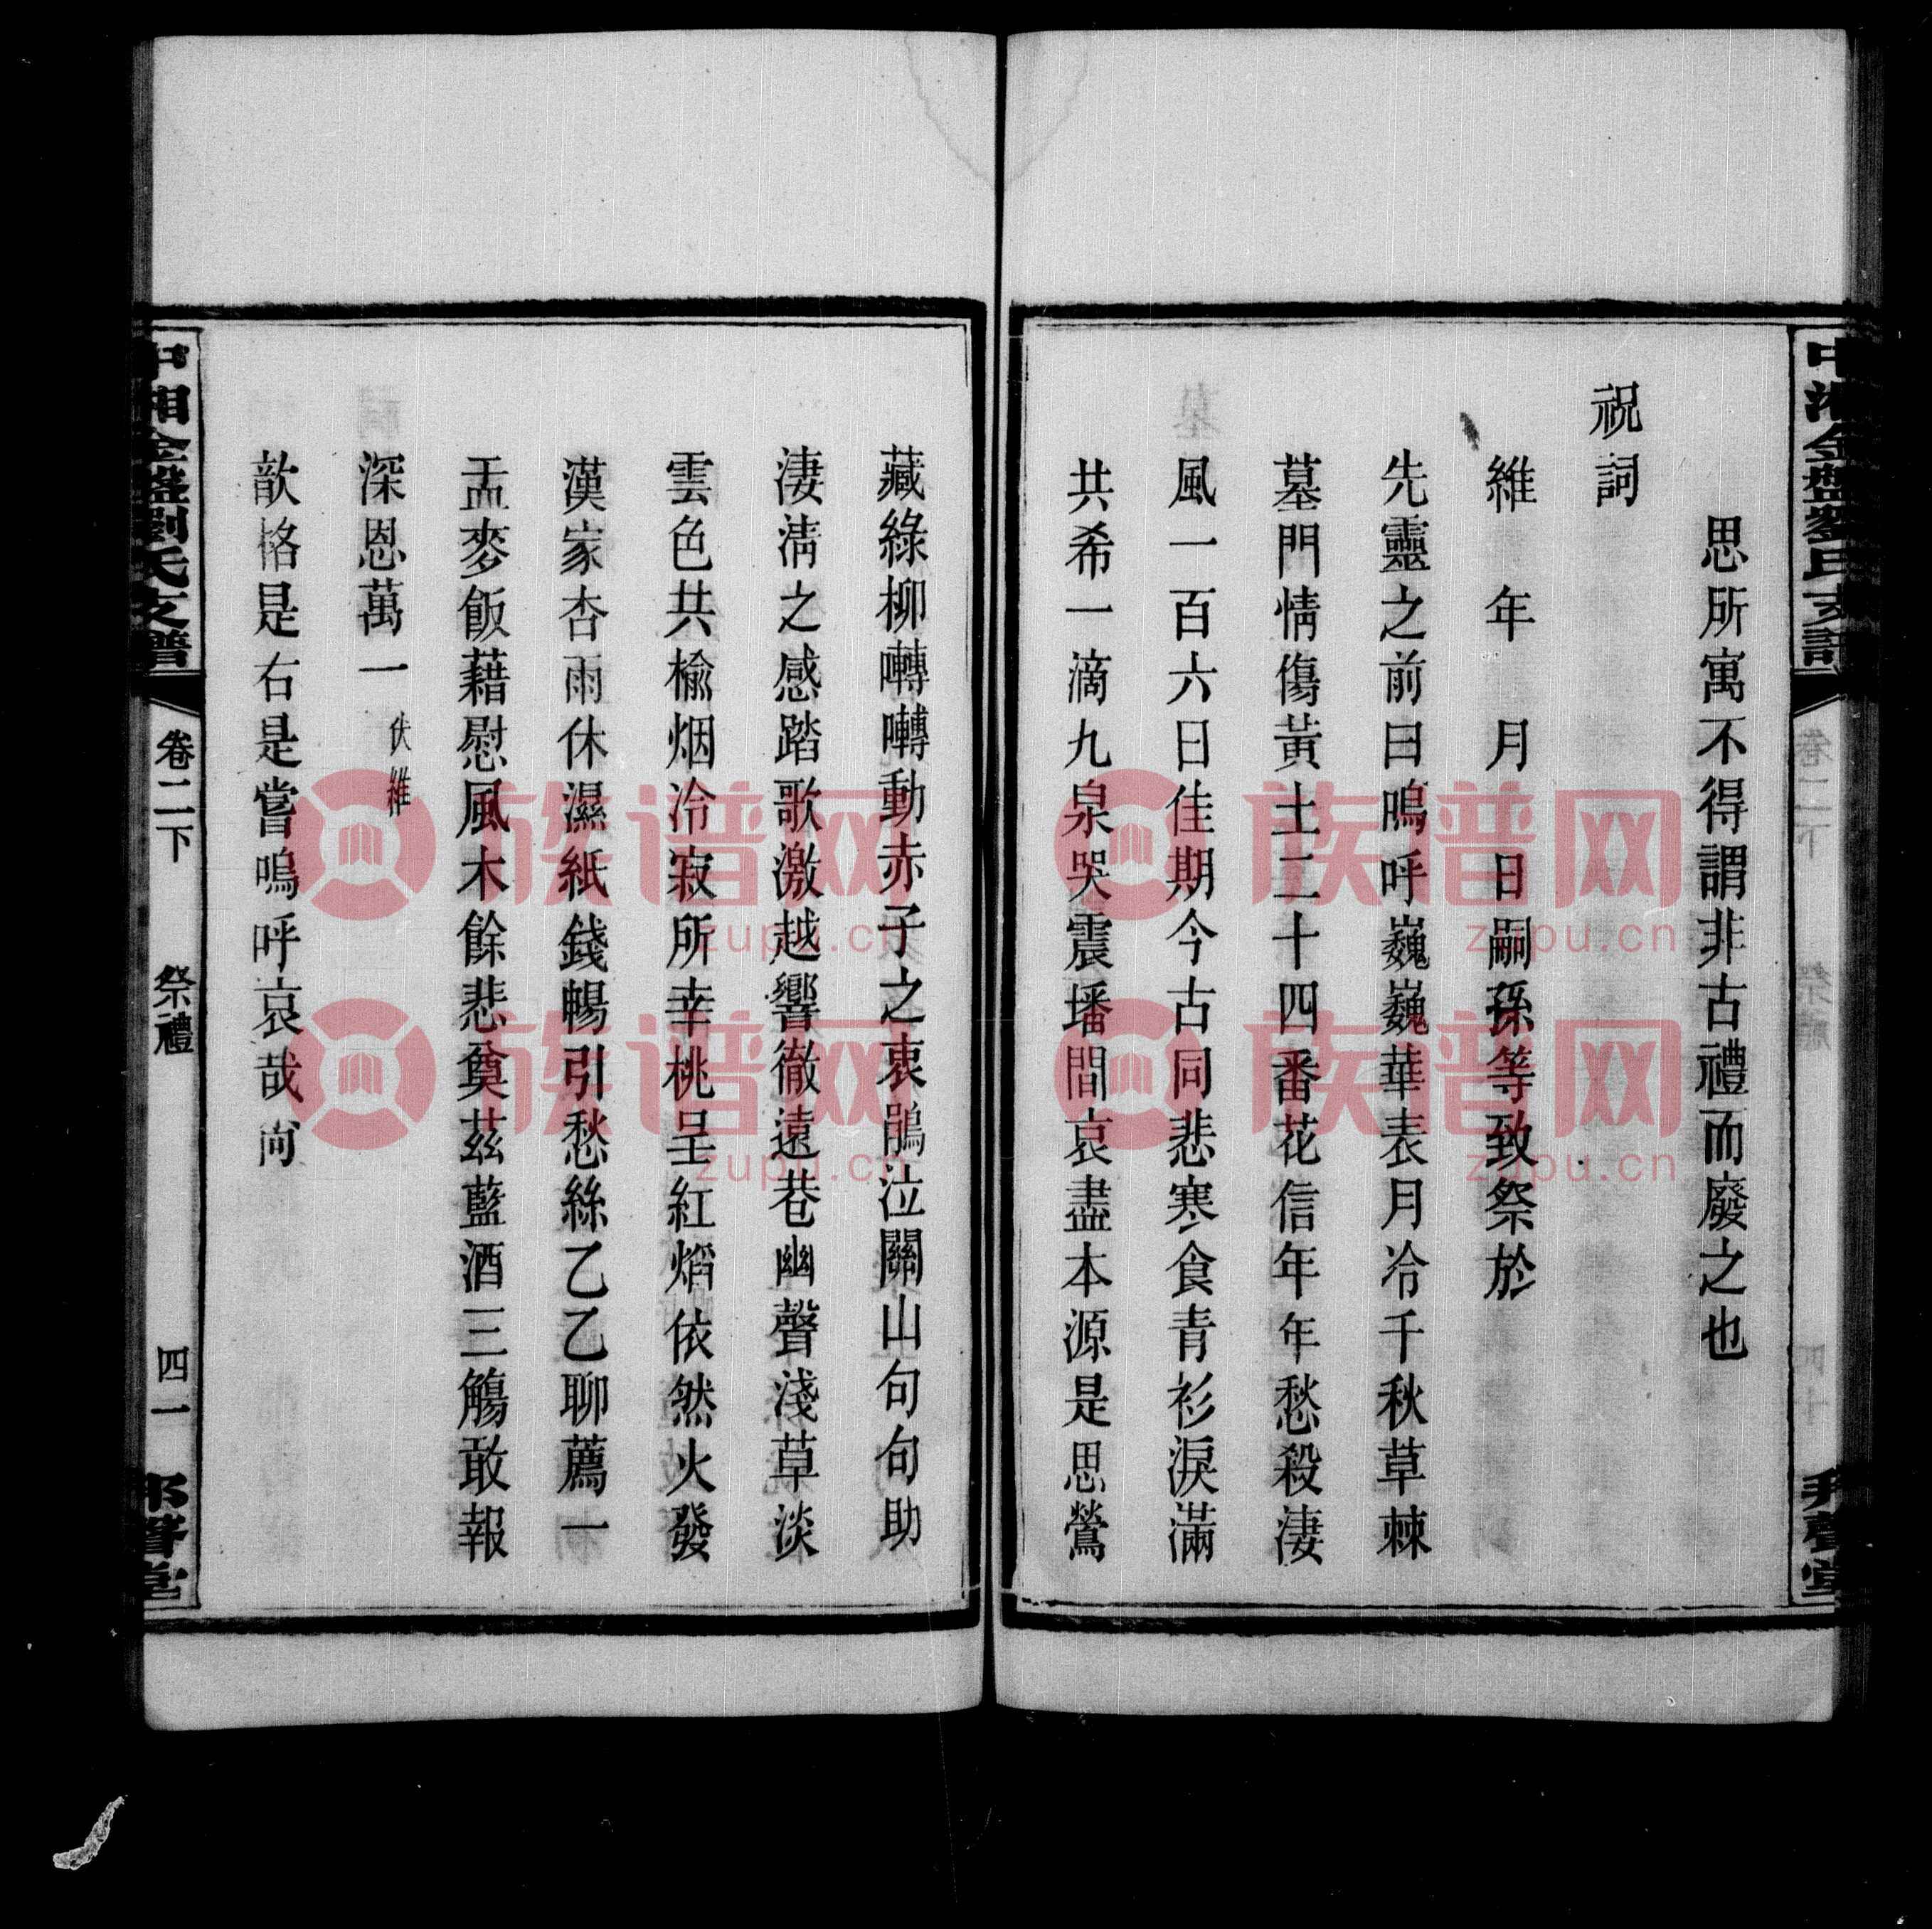 思所寓不得謂非古禮而廢之也
祝詞
維 年 月 日嗣孫等致祭於
先靈之前曰嗚呼巍巍華表月冷千秋草棘
墓門情傷黃土二十四番花信年年愁殺淒
風一百六日佳期今古同悲寒食青衫淚滿
共希一滴九泉哭震墦間哀盡本源是思鶯
藏綠柳囀囀動赤子之衷鵑泣關山句句助
淒清之感踏歌激越響徹遠巷幽聲淺草淡
雲色共榆烟冷寂所幸桃呈紅熖依然火發
漢家杏雨休濕紙錢暢引愁絲乙乙聊薦一
盂麥飯藉慰風木餘悲奠茲藍酒三觴敢報
深恩萬一 伏維
歆格是右是嘗嗚呼哀哉尚
中湘金盤劉氏支譜
卷二下
祭禮
四一
族谱网
zupu.cn
族谱网
zupu.cn
族谱网
zupu.cn
族谱网
zupu.cn